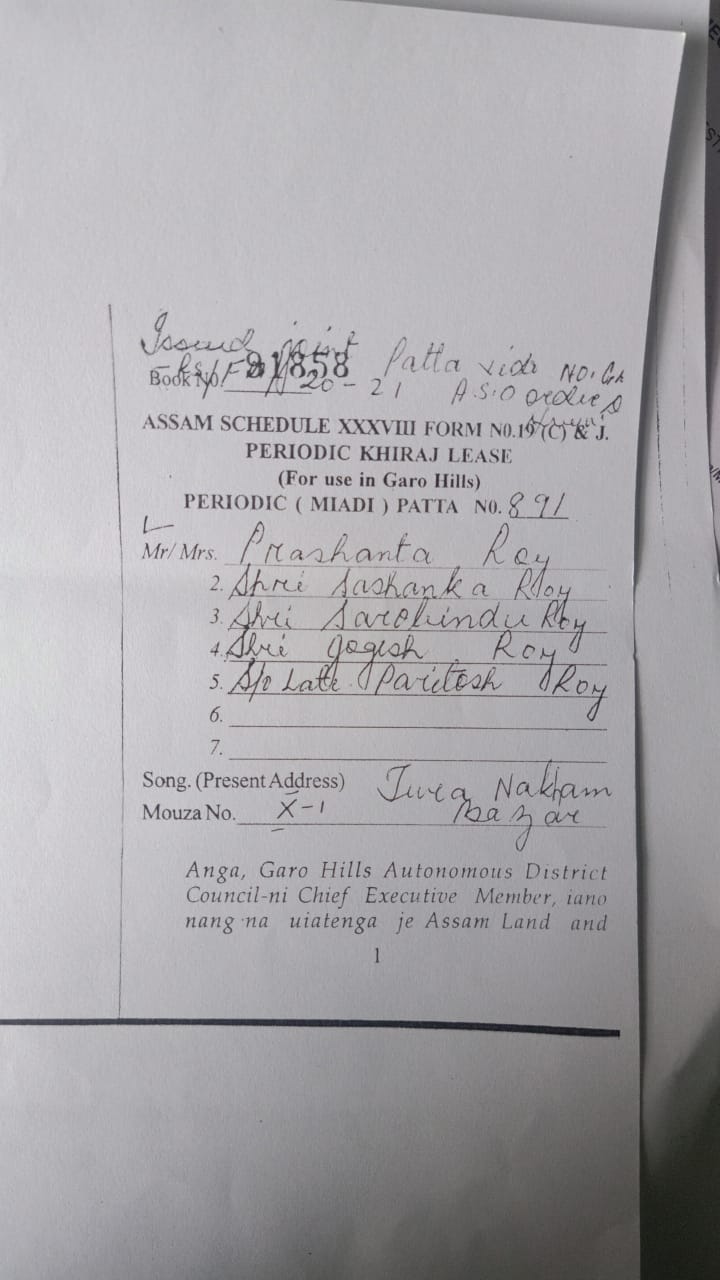 Issued joint Patta vide NO. GA
Book No. 91858 20-21 A.S.O orders
ASSAM SCHEDULE XXXVIII FORM N0.19 (C) & J.
PERIODIC KHIRAJ LEASE
(For use in Garo Hills)
PERIODIC ( MIADI ) PATTA N0. 891
Mr/ Mrs. Prashanta Roy
2. Shri Sashanka Roy
3. Shri Roy
4. Shri Jogesh Roy
5. S/o Late Paritosh Roy
6.
7.
Song. (Present Address) Tura Nakham
Mouza No. X-1 Bazar
Anga, Garo Hills Autonomous District
Council-ni Chief Executive Member, iano
nang·na uiatenga je Assam Land and
1